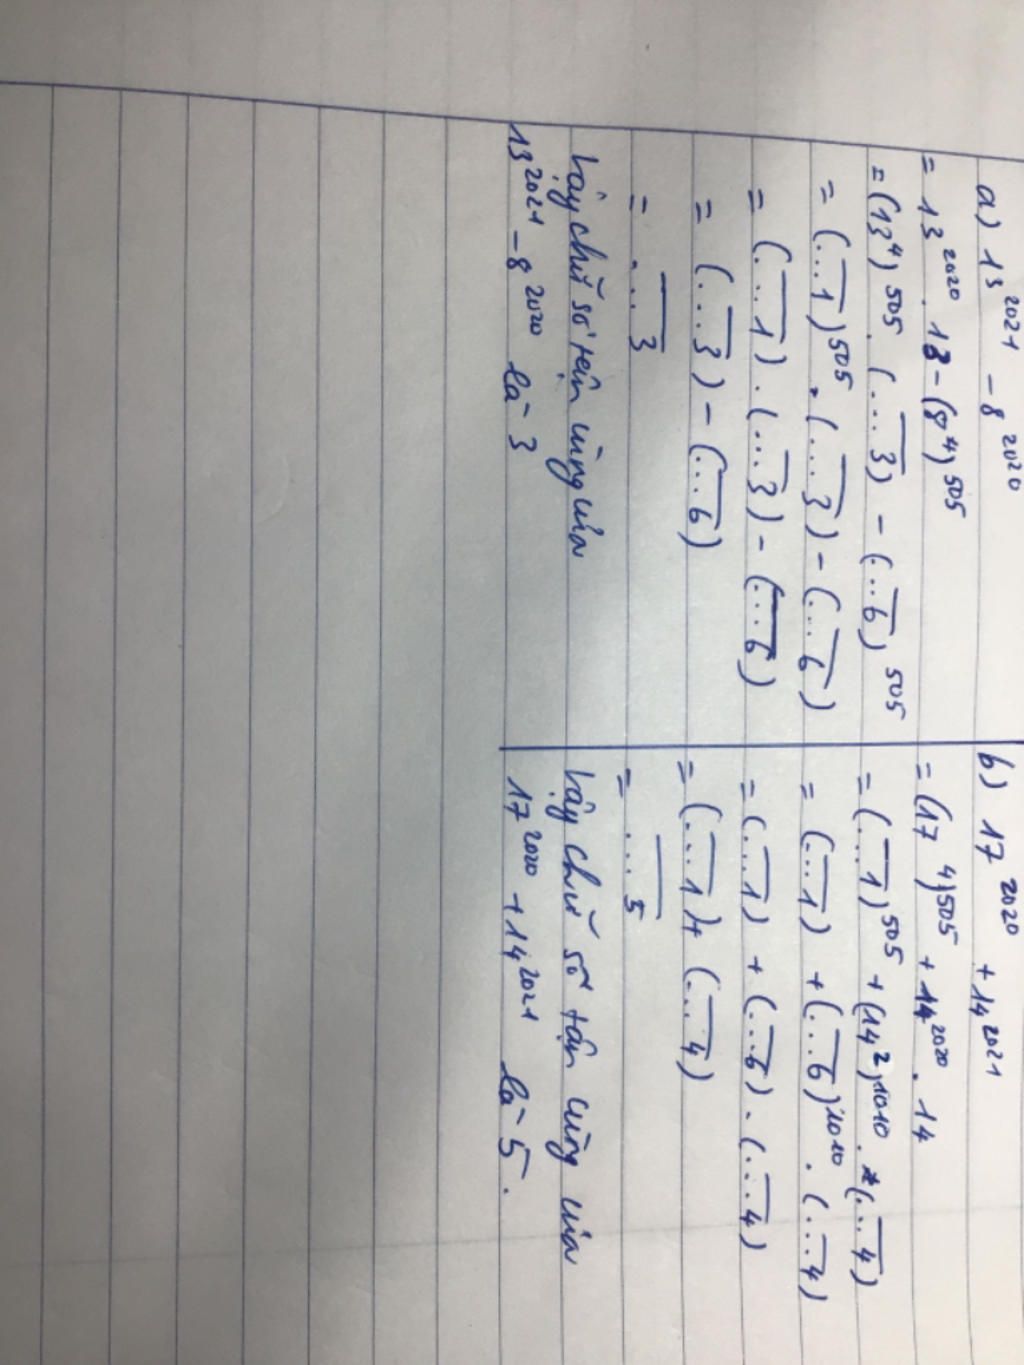 a) 13^2021 - 8^2020
= 13^2020 . 13 - (8^4)^505
= (13^4)^505 . (...3) - (...6)^505
= (...1)^505 . (...3) - (...6)
= (...1) . (...3) - (...6)
= (...3) - (...6)
= ...3
Vậy chữ số tận cùng của
13^2021 - 8^2020 là 3
b) 17^2020 + 14^2021
= (17^4)^505 + 14^2020 . 14
= (...1)^505 + (14^2)^1010 . (...4)
= (...1) + (...6)^1010 . (...4)
= (...1) + (...6) . (...4)
= (...1) + (...4)
= ...5
Vậy chữ số tận cùng của
17^2020 + 14^2021 là 5.